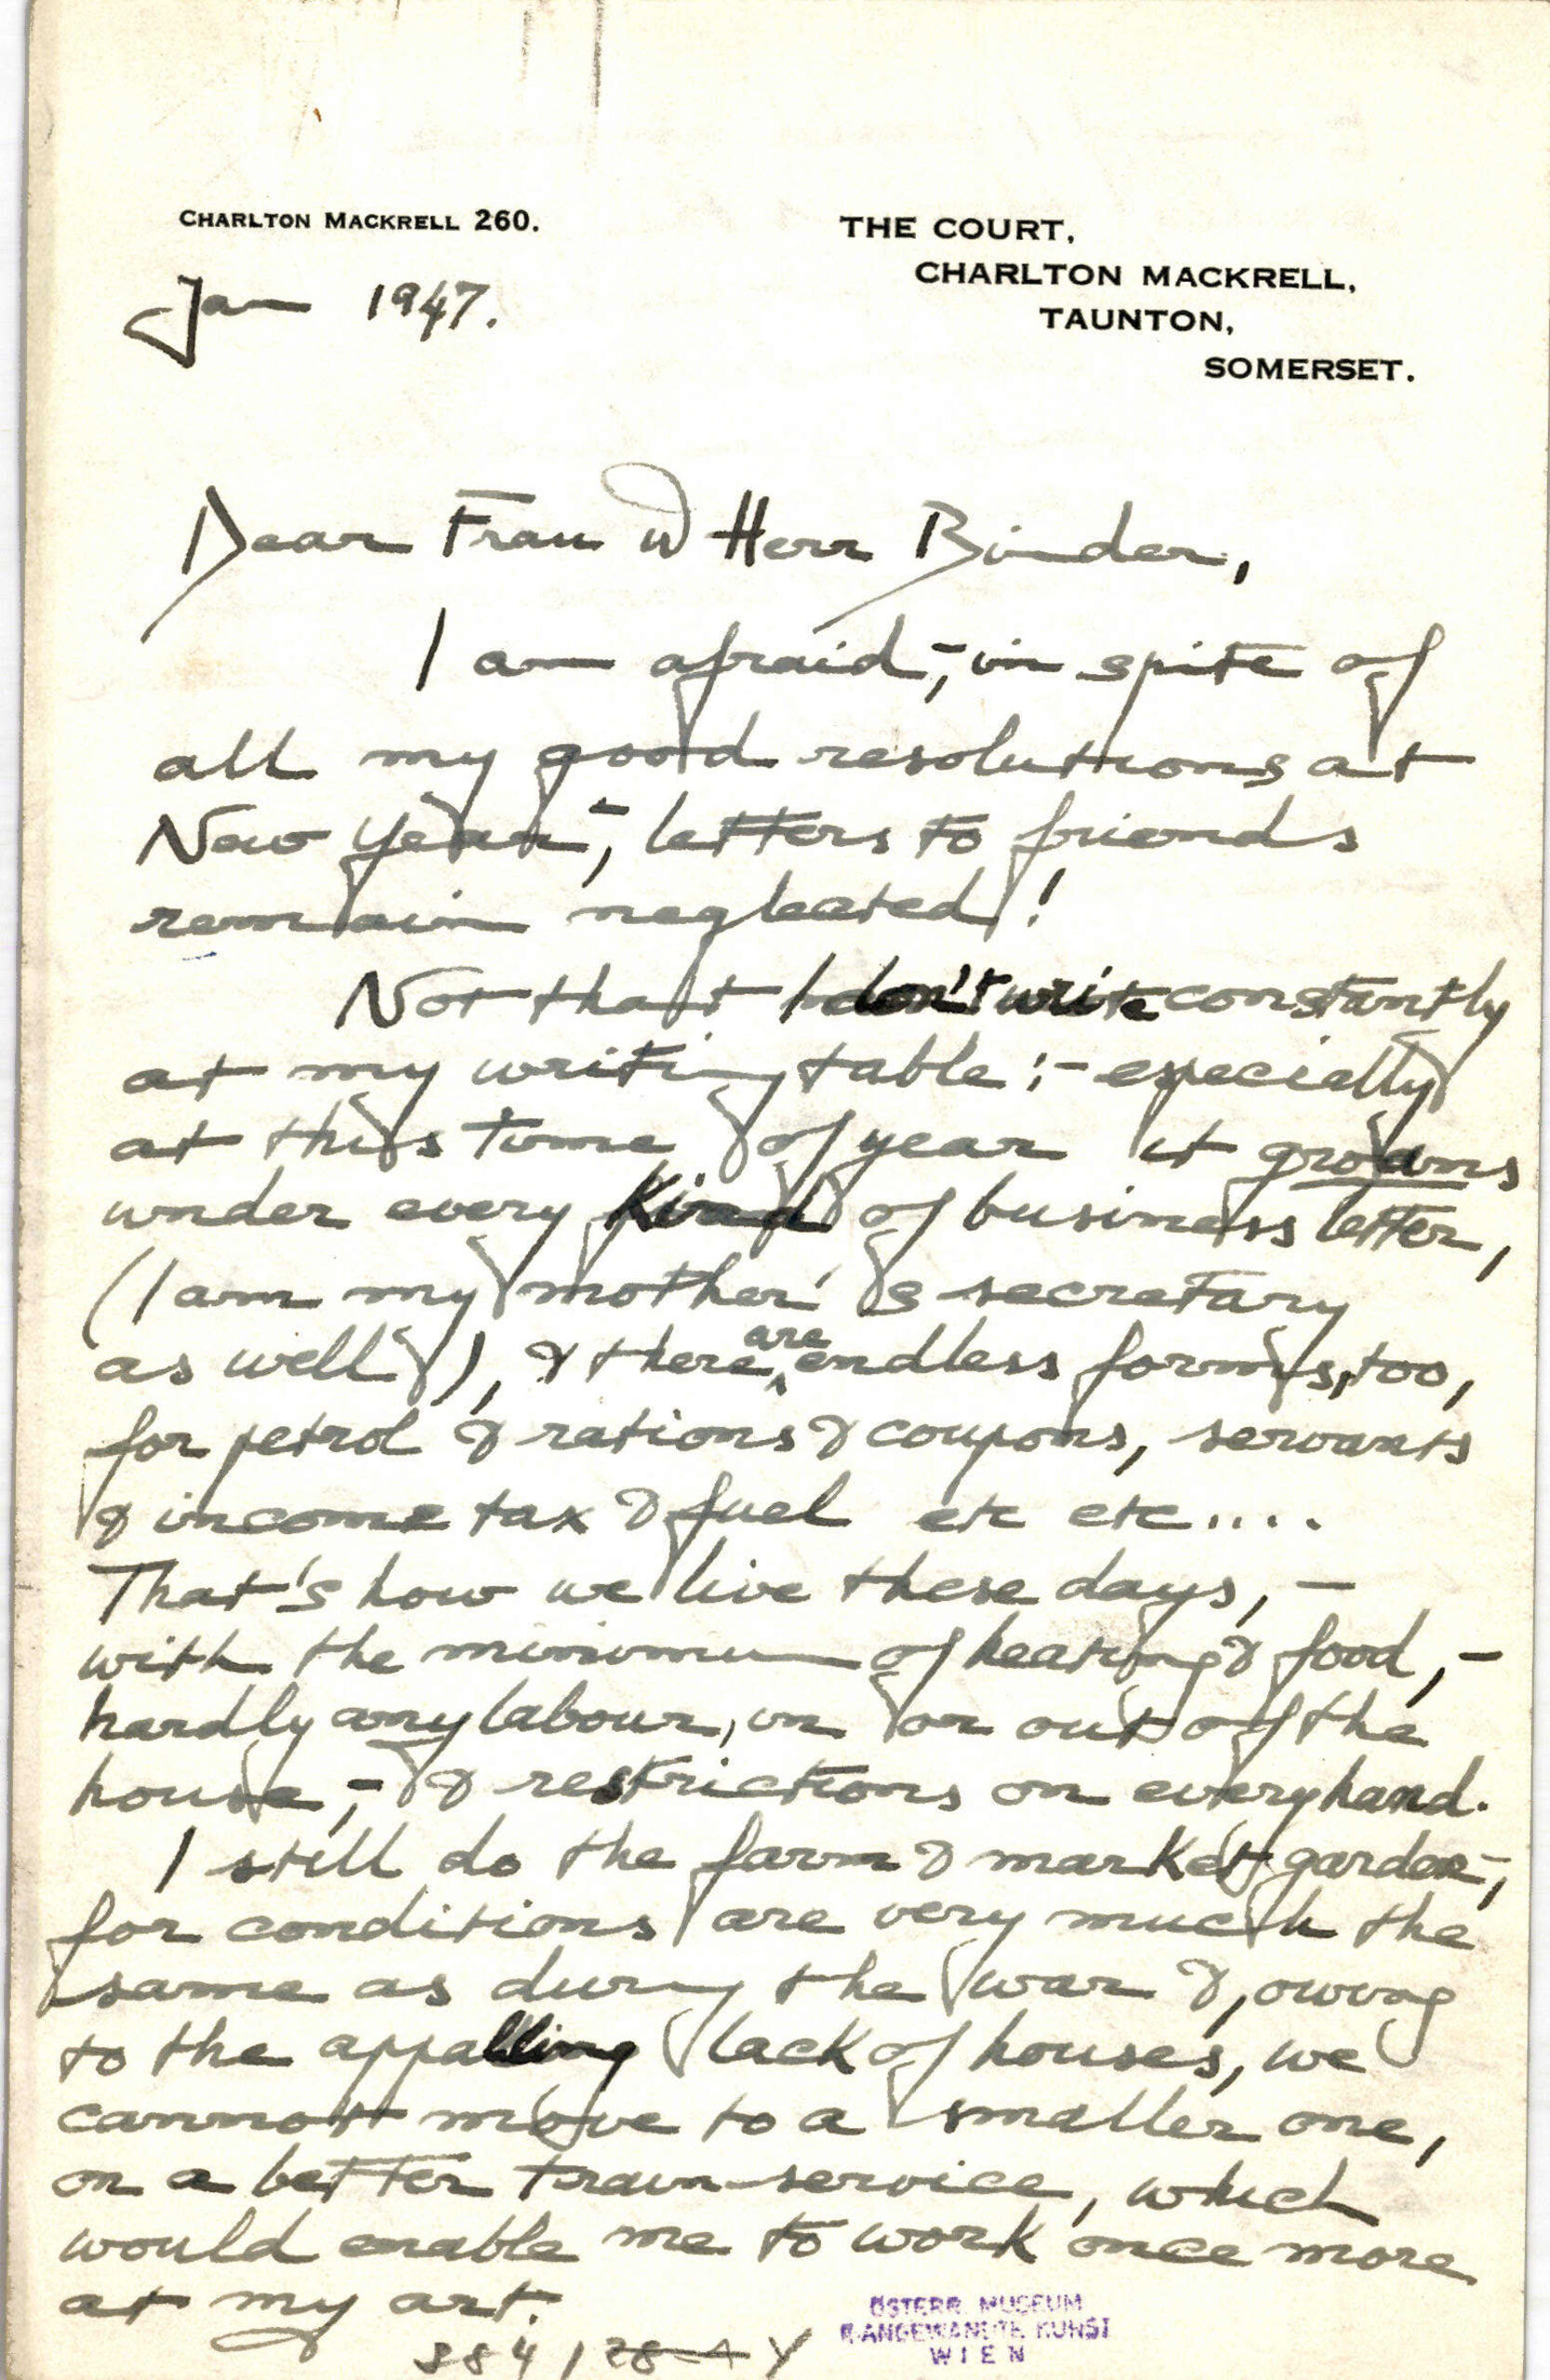 CHARLTON MACKRELL 260.
THE COURT,
CHARLTON MACKRELL,
TAUNTON,
SOMERSET.
Jan 1947.
Dear Frau u Herr Binder,
I am afraid,- in spite of
all my good resolutions at
New Year,- letters to friends
remain neglected!
Not that I don't write constantly
at my writing table:- especially
at this time of year it groans
under every kind of business letter,
(I am my mother's secretary
as well), & there are endless forms, too,
for petrol & rations & coupons, servants
& income tax & fuel etc etc....
That's how we live these days,-
with the minimum of heating & food,-
hardly any labour, in or out of the
house,- & restrictions on every hand.
I still do the farm & market garden,-
for conditions are very much the
same as during the war &, owing
to the appalling lack of houses, we
cannot move to a smaller one,
on a better train-service, which
would enable me to work once more
at my art.
ÖSTERR. MUSEUM
F. ANGEWANDTE KUNST
WIEN